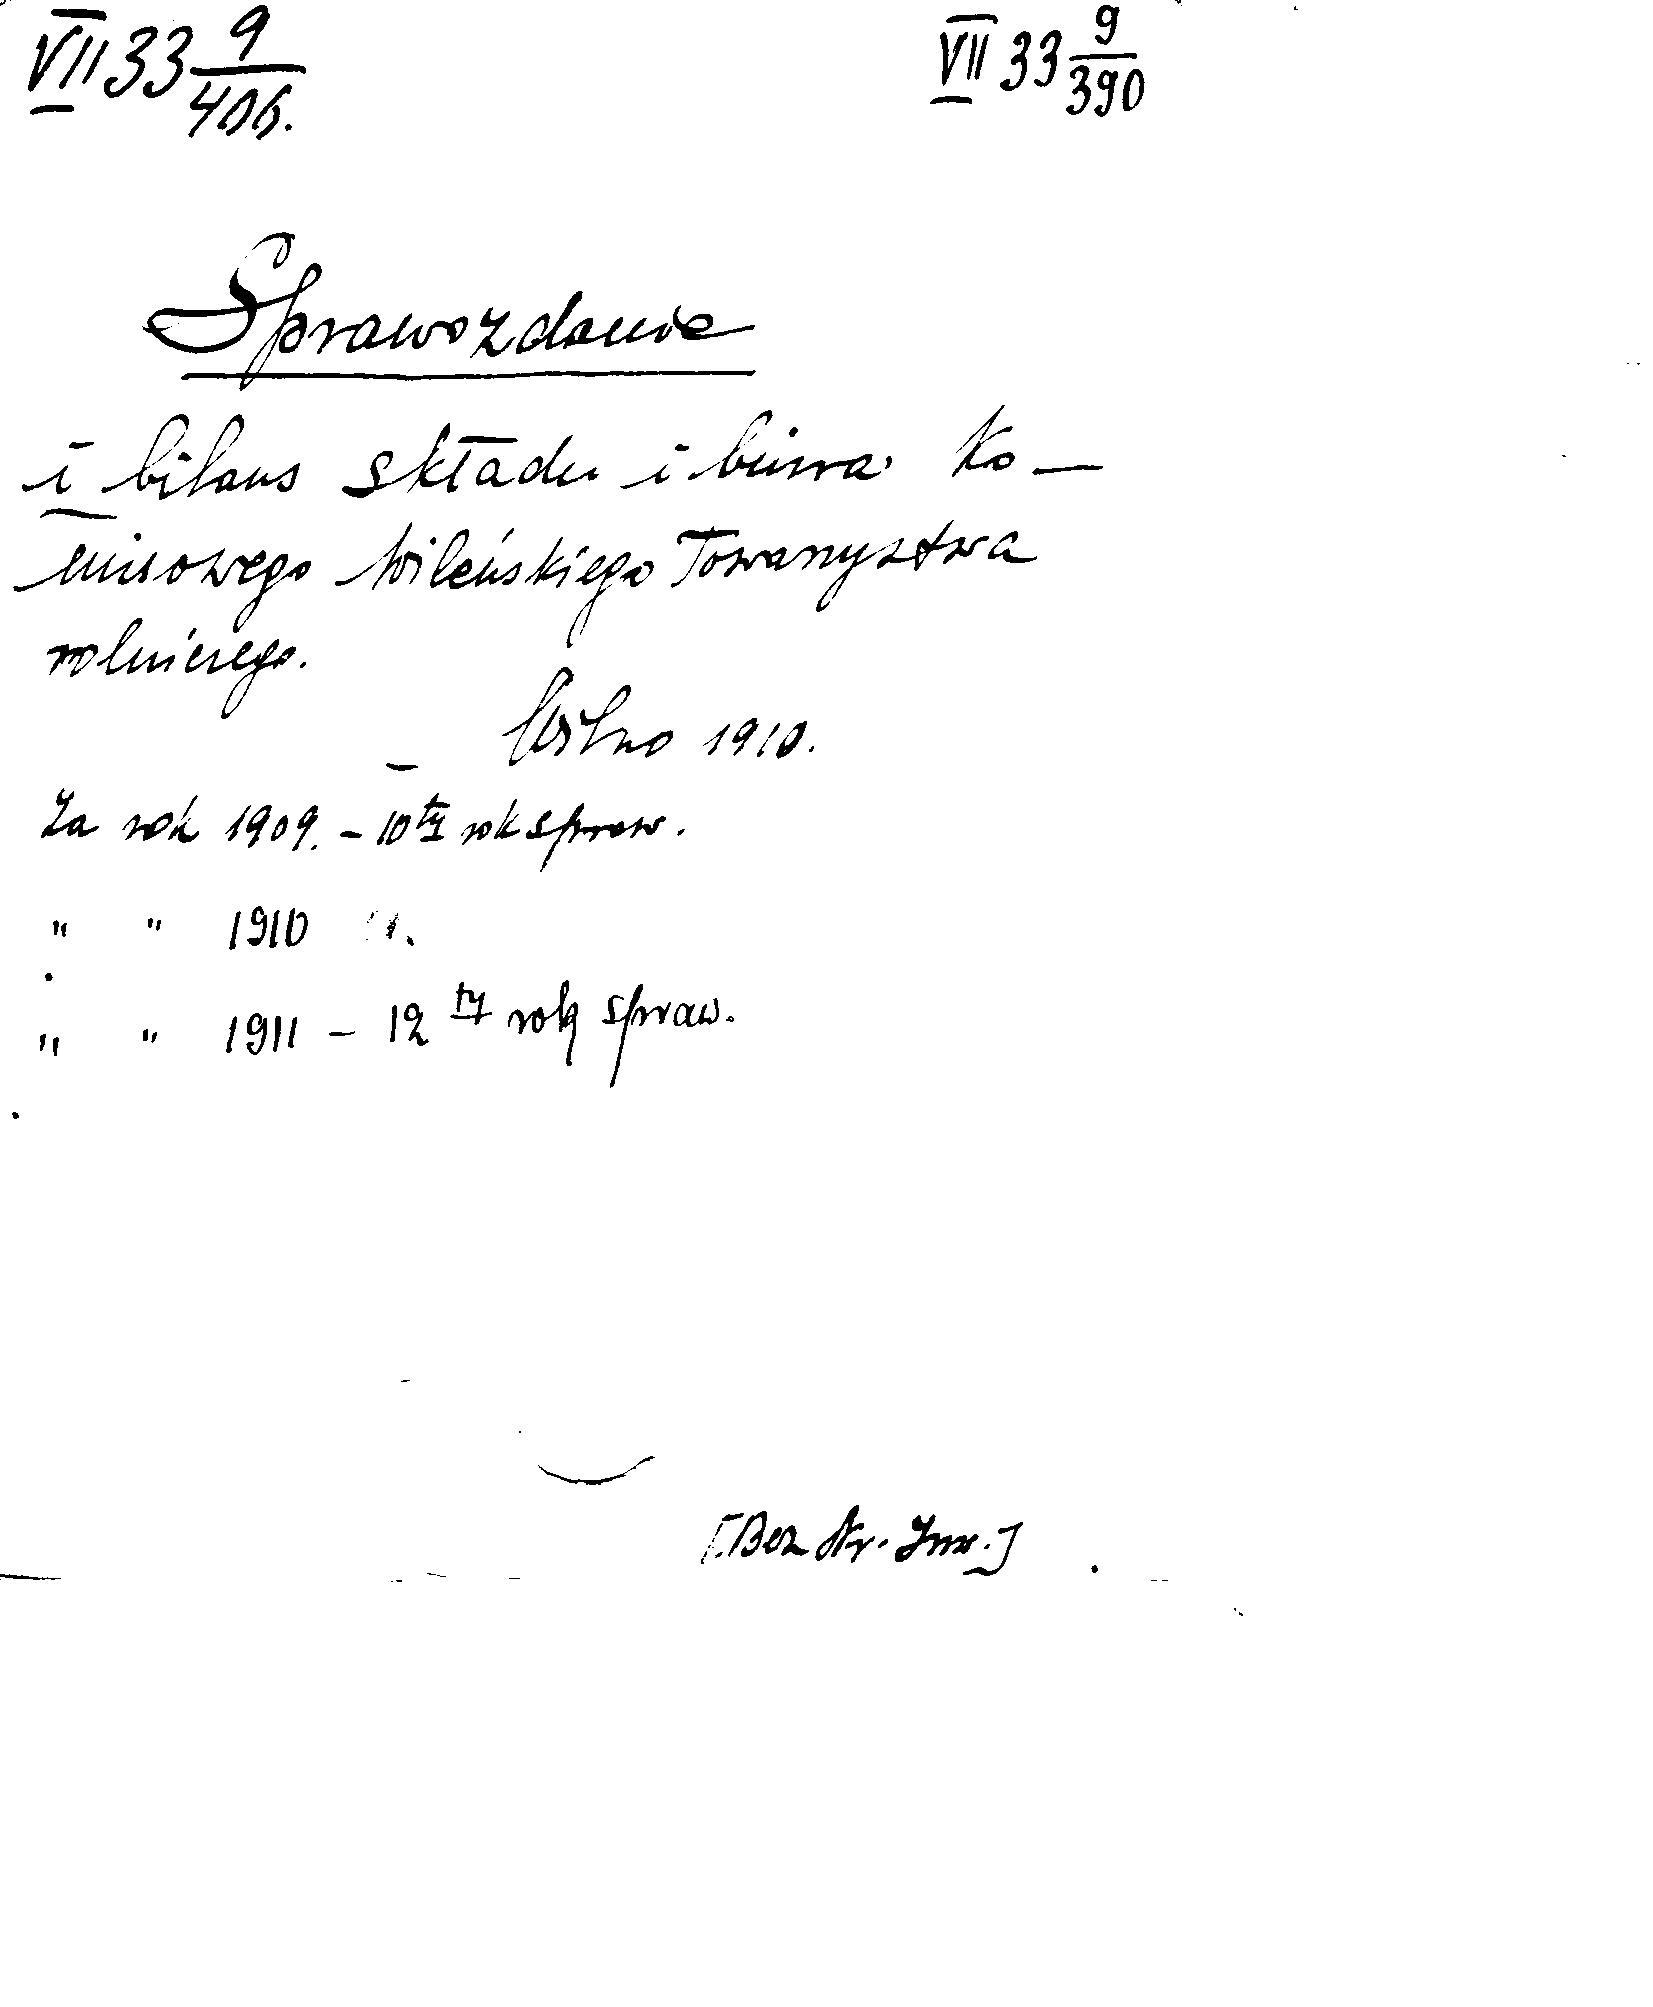 VII 33 9/406. VII 33 9/390
Sprawozdanie
i bilans składu i biura Ko—
misowego Wileńskiego Towarzystwa
rolniczego.
Wilno 1910.
Za rok 1909. – 10ty rok spraw.
" " 1910 ".
" " 1911 – 12ty rok spraw.
[Bez Nr. Inw.]